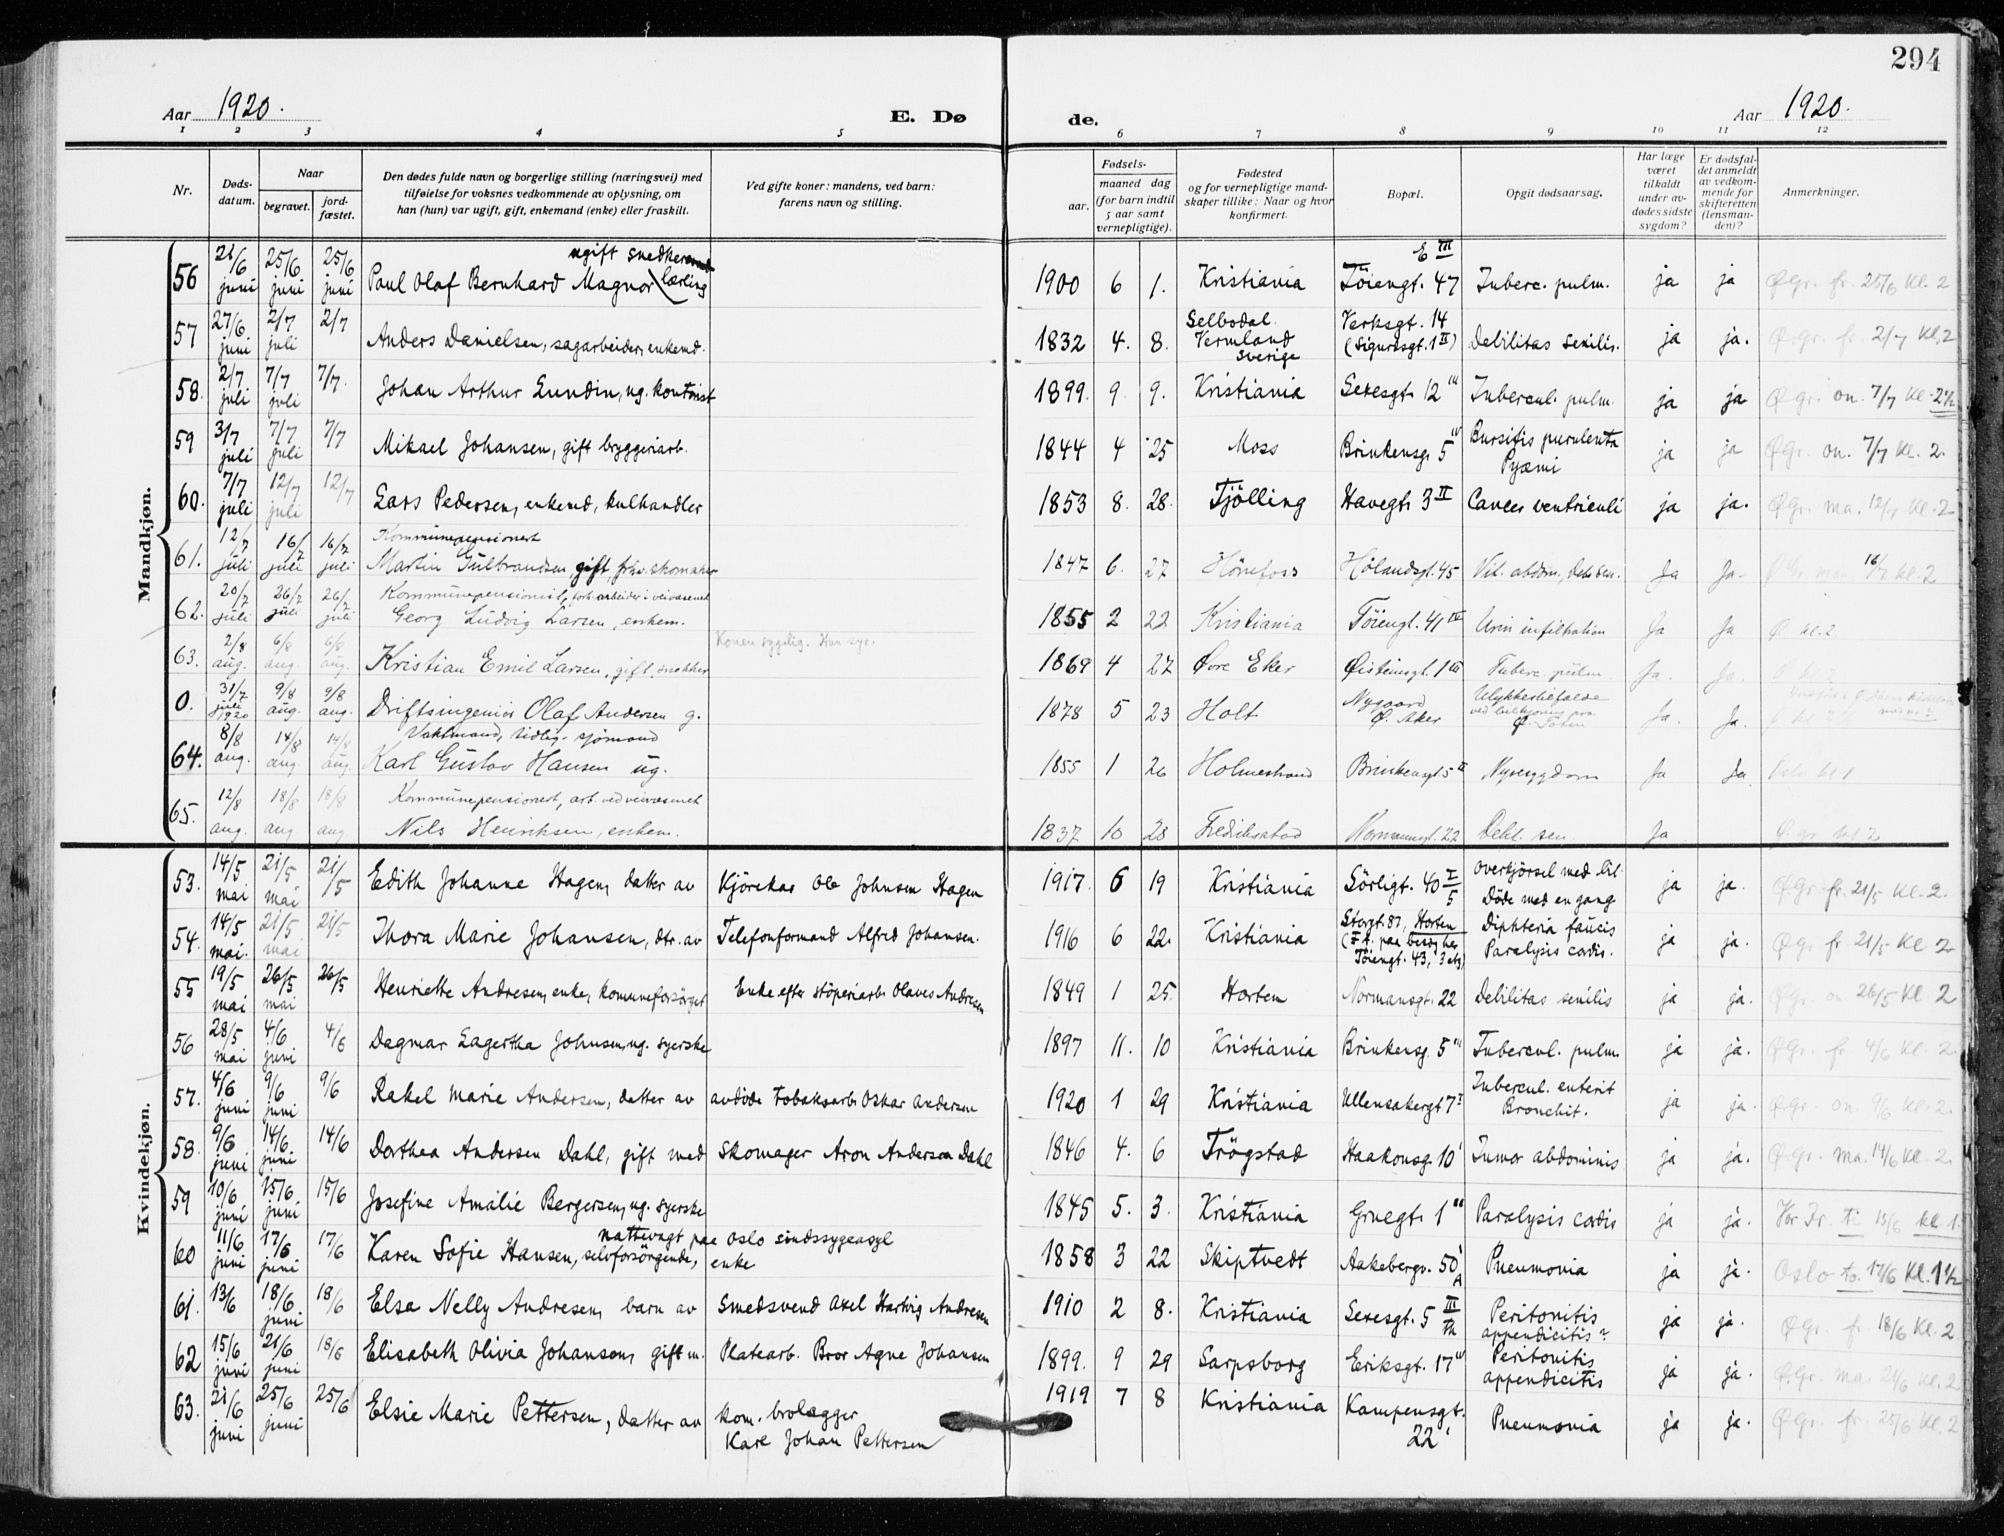 294
Aar 1920.
E. Dø
de.
Aar 1920.
1 2 3 4 5 6 7 8 9 10 11 12
Nr.
Døds-
datum.
Naar
begravet.
jord-
fæstet.
Den dødes fulde navn og borgerlige stilling (næringsvei) med
tilføielse for voksnes vedkommende av oplysning, om
han (hun) var ugift, gift, enkemand (enke) eller fraskilt.
Ved gifte koner: mandens, ved barn:
farens navn og stilling.
Fødsels-
aar.
maaned dag
(for barn indtil
5 aar samt
vernepligtige).
Fødested
og for vernepligtige mand-
skaper tillike: Naar og hvor
konfirmert.
Bopæl.
Opgit dødsaarsag.
Har læge
været
tilkaldt
under av-
dødes sidste
sygdom?
Er dødsfal-
det anmeldt
av vedkom-
mende for
skifteretten
(lensman-
den)?
Anmerkninger.
Mandkjøn.
ugift snedker E III
56 21/6 juni 25/6 juni 25/6 juni Paul Olaf Bernhard Magnor lærling 1900 6 1. Kristiania Töiengt. 47 Tuberc. pulm. ja ja Ø Gr. fr. 25/6 Kl. 2
57 27/6 juni 2/7 juli 2/7 Anders Danielsen, sagarbeider, enkemd. 1832 4. 8. Selbodal Vermland Sverige Verksgt. 14 (Sigurdsgt. 1 II) Debilitas senilis. ja ja. Ø. Gr. fr. 2/7 Kl. 2
58. 2/7 juli 7/7 juli 7/7. Johan Arthur Lundin, ug. kontorist 1899. 9. 9. Kristiania Sexesgt. 12 III Tubercul. pulm. ja ja Ø Gr. on. 7/7 Kl. 2 1/2
59 3/7 juli 7/7 juli 7/7 Mikael Johansen, gift bryggeriarb. 1844 4 25 Moss Brinkensg. 5 IV Bursitis purulenta Pyæmi ja ja Ø Gr. on. 7/7 Kl. 2.
60. 7/7 juli 12/7 juli 12/7 Lars Pedersen, enkemd, kulhandler 1853 8. 28. Tjölling Havegt. 3 II Cancer ventriculi ja ja. Ø Gr. ma. 12/7 Kl. 2
Kommunepensionert
61. 12/7 juli 16/7 juli 16/7 juli Martin Gulbrandsen, gift, frhv. skomaker 1847 6. 27 Hönefoss Hölandsgt. 45 Vit. abdom, Deb. sen. Ja Ja. 16/7 kl. 2
Kommunepensionist, forh. arbeider i veivæsenet
62. 20/7 juli 26/7 juli 26/7 juli Georg Ludvig Larsen, enkem. 1855 2 22 Kristiania Töiengt. 41 IV Urin infiltration Ja Ja Ø. kl. 2
63. 2/8 aug. 6/8 aug. 6/8 aug. Kristian Emil Larsen, gift, snekker Konen sygelig. Han syr. 1869 4 27 Øvre Eker Øisteinsgt. 1 III Tuberc. pulm. Ja. Ja.
0. 31/7 juli 1920 9/8 aug. 9/8 aug. Driftsingeniør Olaf Andersen g. 1878 5 23 Holt Nygaard Ø. Aker Ulykkestilfælde ved bilkjøring paa Ø. Toten Ja. Ja.
Vaktmand, tidlig. sjömand
64. 8/8 aug. 14/8 aug. 14/8 aug. Karl Gustav Hansen ug. 1855 1 26 Holmestrand Brinkensgt. 5 II Nyresygdom Ja Ja. Oslo kl 1
Kommunepensionert, arb. ved veivæsenet
65. 12/8 aug. 18/8 aug 18/8 aug. Nils Henriksen, enkem. 1837 10 28 Fredikstad Normannsgt. 22 Debil. sen. Ja Ø. gr. kl 2
Kvindekjøn.
53. 14/5 mai 21/5 mai 21/5 Edith Johanne Hagen, datter av Kjörekar Ole Johnsen Hagen 1917. 6 19 Kristiania Sörligt. 40 I/5 Overkjørsel med bil. Döde med en gang ja ja. Ø Gr. fr. 21/5 Kl. 2.
54. 14/5 mai. 21/5 mai 21/5 Thora Marie Johansen, dtr. av Telefonformand Alfred Johansen. 1916 6 22. Kristiania Storgt. 87, Horten (F. A. paa besög her Töiengt. 43, 3 etg) Diphteria faucis Paralysis cordis. ja ja. Ø Gr fr. 21/5 Kl 2
55 19/5 mai 26/5 mai 26/5 Henriette Andresen, enke, kommuneforsörget Enke efter stöperiarb. Olaves Andresen 1849 1 25. Horten Normansgt. 22 Debilitas senilis ja ja. Ø Gr on 26/5 Kl 2
56 28/5 mai 4/6 juni 4/6 Dagmar Lagertha Johnsen, ug. syerske 1897 11. 10 Kristiania Brinkensg. 5 III Tubercul. pulm. ja ja. Ø Gr. fr 4/6 Kl. 2.
57. 4/6 juni 9/6 juni 9/6 Rakel Marie Andersen, datter av avdöde tobaksarb. Oskar Andersen 1920 1 29 Kristiania Ullensakergt 7 I Tubercul. enterit Bronchit. ja ja. Ø Gr. on. 9/6 Kl. 2.
58. 9/6 juni 14/6. juni 14/6 Dorthea Andersen Dahl, gift med skomager Aron Anderson Dahl 1846 4. 6 Trögstad Haakonsg. 10 I Tumor abdominis ja ja. Ø Gr. ma. 14/6 Kl. 2.
59 10/6 juni 15/6 juni 15/6 Josefine Amalie Bergersen, ug. syerske 1845 5. 3. Kristiania Gruegt. 1 II Paralysis cordis ja ja. Vor Fr. ti 15/6 kl. 1.
nattevagt paa Oslo sindssygeasyl
60 11/6 juni 17/6 juni 17/6 Karen Sofie Hansen, selvforsörgende, enke 1858 3 22 Skiptvedt Aakebergv. 50 I A Pneumonia ja ja. Oslo to. 17/6 Kl. 1 1/2
61. 13/6 18/6. juni 18/6 Elsa Nelly Andresen, barn av smedsvend Axel Hartvig Andresen 1910 2 8. Kristiania Sexesgt. 5 III th Peritonitis appendicitis? ja ja. Ø Gr. fr. 18/6 Kl. 2
62 15/6 juni 21/6 juni 18/6 Elisabeth Olivia Johanson, gift m. Platearb. Bror Agne Johansen 1899. 9 29 Sarpsborg Eriksgt. 17 IV Peritonitis appendicitis ja ja. Ø Gr. ma. 21/6 Kl. 2
63. 21/6 juni 25/6 juni 25/6 Elsie Marie Pettersen, datter av kom. brolægger Karl Johan Pettersen 1919 7 8 Kristiania Kampensgt. 22 I Pneumonia ja ja. Ø Gr. fr. 25/6 Kl. 2